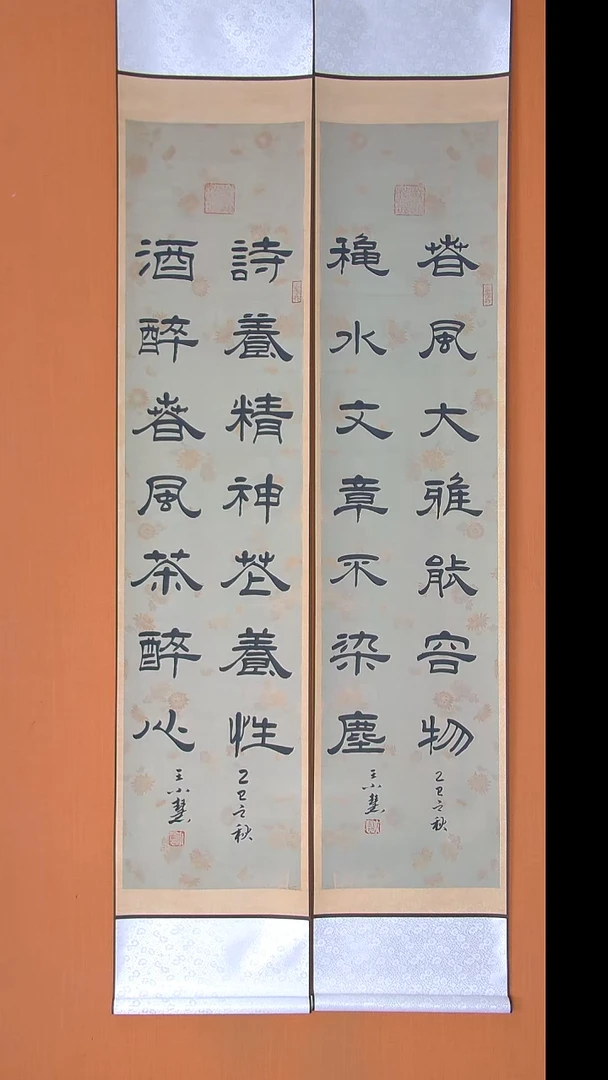 春風大雅能容物
穐水文章不染塵
乙巳之秋
王小慧
詩養精神花養性
酒醉春風茶醉心
乙巳之秋
王小慧